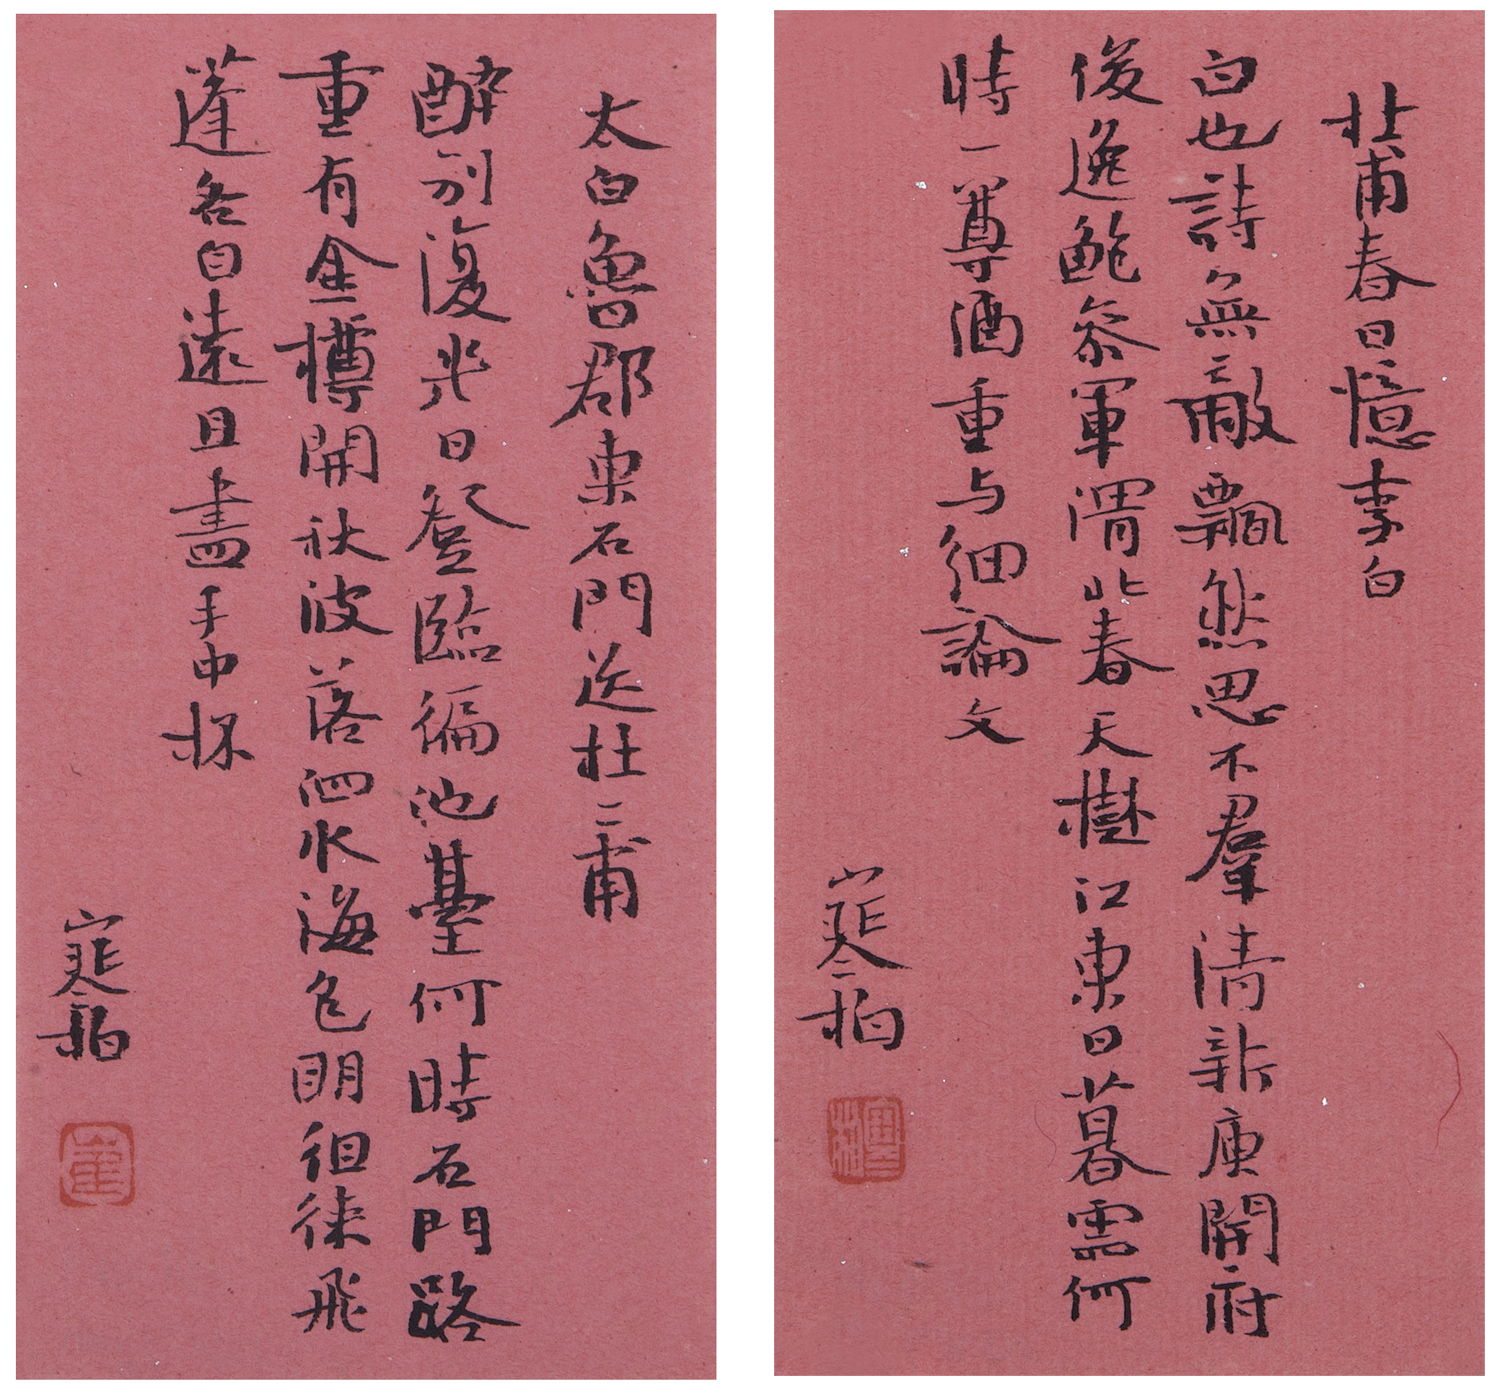 杜甫春日憶李白
白也詩無敵飄然思不羣清新庾開府
俊逸鮑參軍渭北春天樹江東日暮雲何
時一尊酒重与細論文
寒柏
寒柏
太白魯郡東石門送杜二甫
醉別復幾日登臨徧池臺何時石門路
重有金樽開秋波落泗水海色明徂徠飛
蓬各自遠且盡手中杯
寒柏
崔